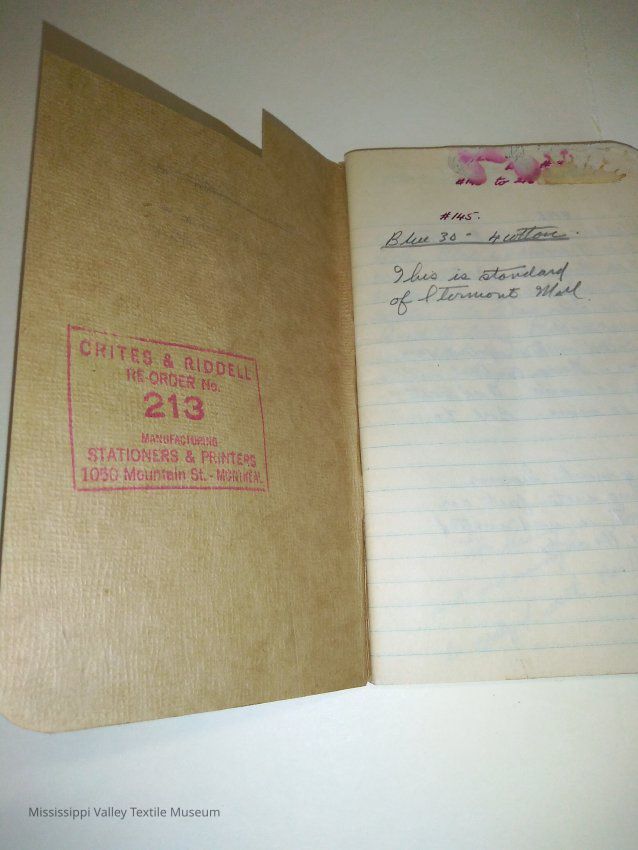 CRITES & RIDDELL
RE-ORDER No.
213
MANUFACTURING
STATIONERS & PRINTERS
1050 Mountain St. - MONTREAL
to
#145.
Blue 30 - 4 cotton.
This is standard
of
Mississippi Valley Textile Museum